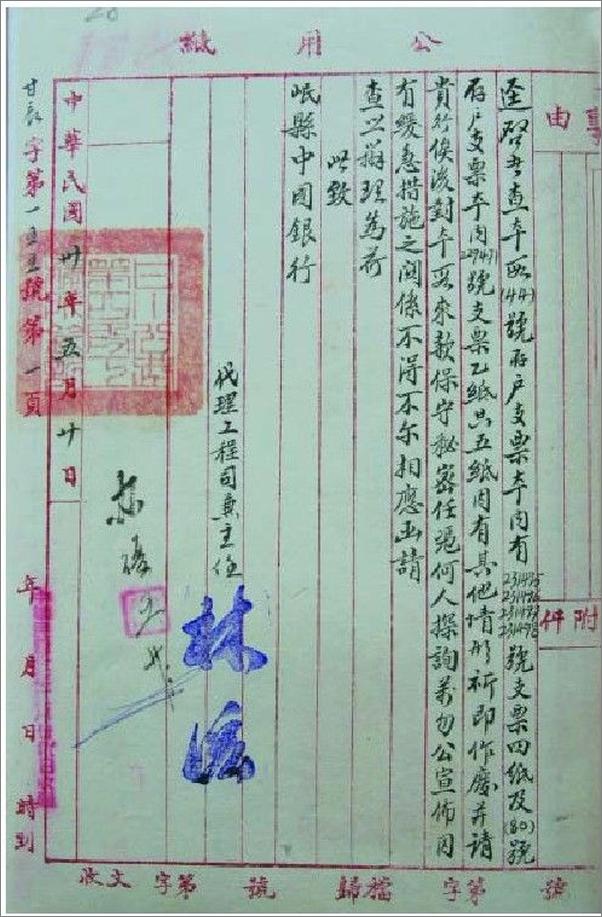 公用紙
事由
附件
逕啓者查本段(44)號存户支票本内有231475 231476 231477 231478號支票四紙及(80)號
存户支票本内(29471)號支票乙紙共五紙因有其他情形祈即作廢并請
貴行俟後對本段來款保守秘密任憑何人探詢萬勿公宣佈因
有緩急措施之関係不得不尔相應函請
查照辦理為荷
此致
岷縣中国銀行
代理工程司兼主任 林
中華民國卅年五月廿日
字第一五五號第一頁
年月日時到
號 第字 檔歸 號 第字文收